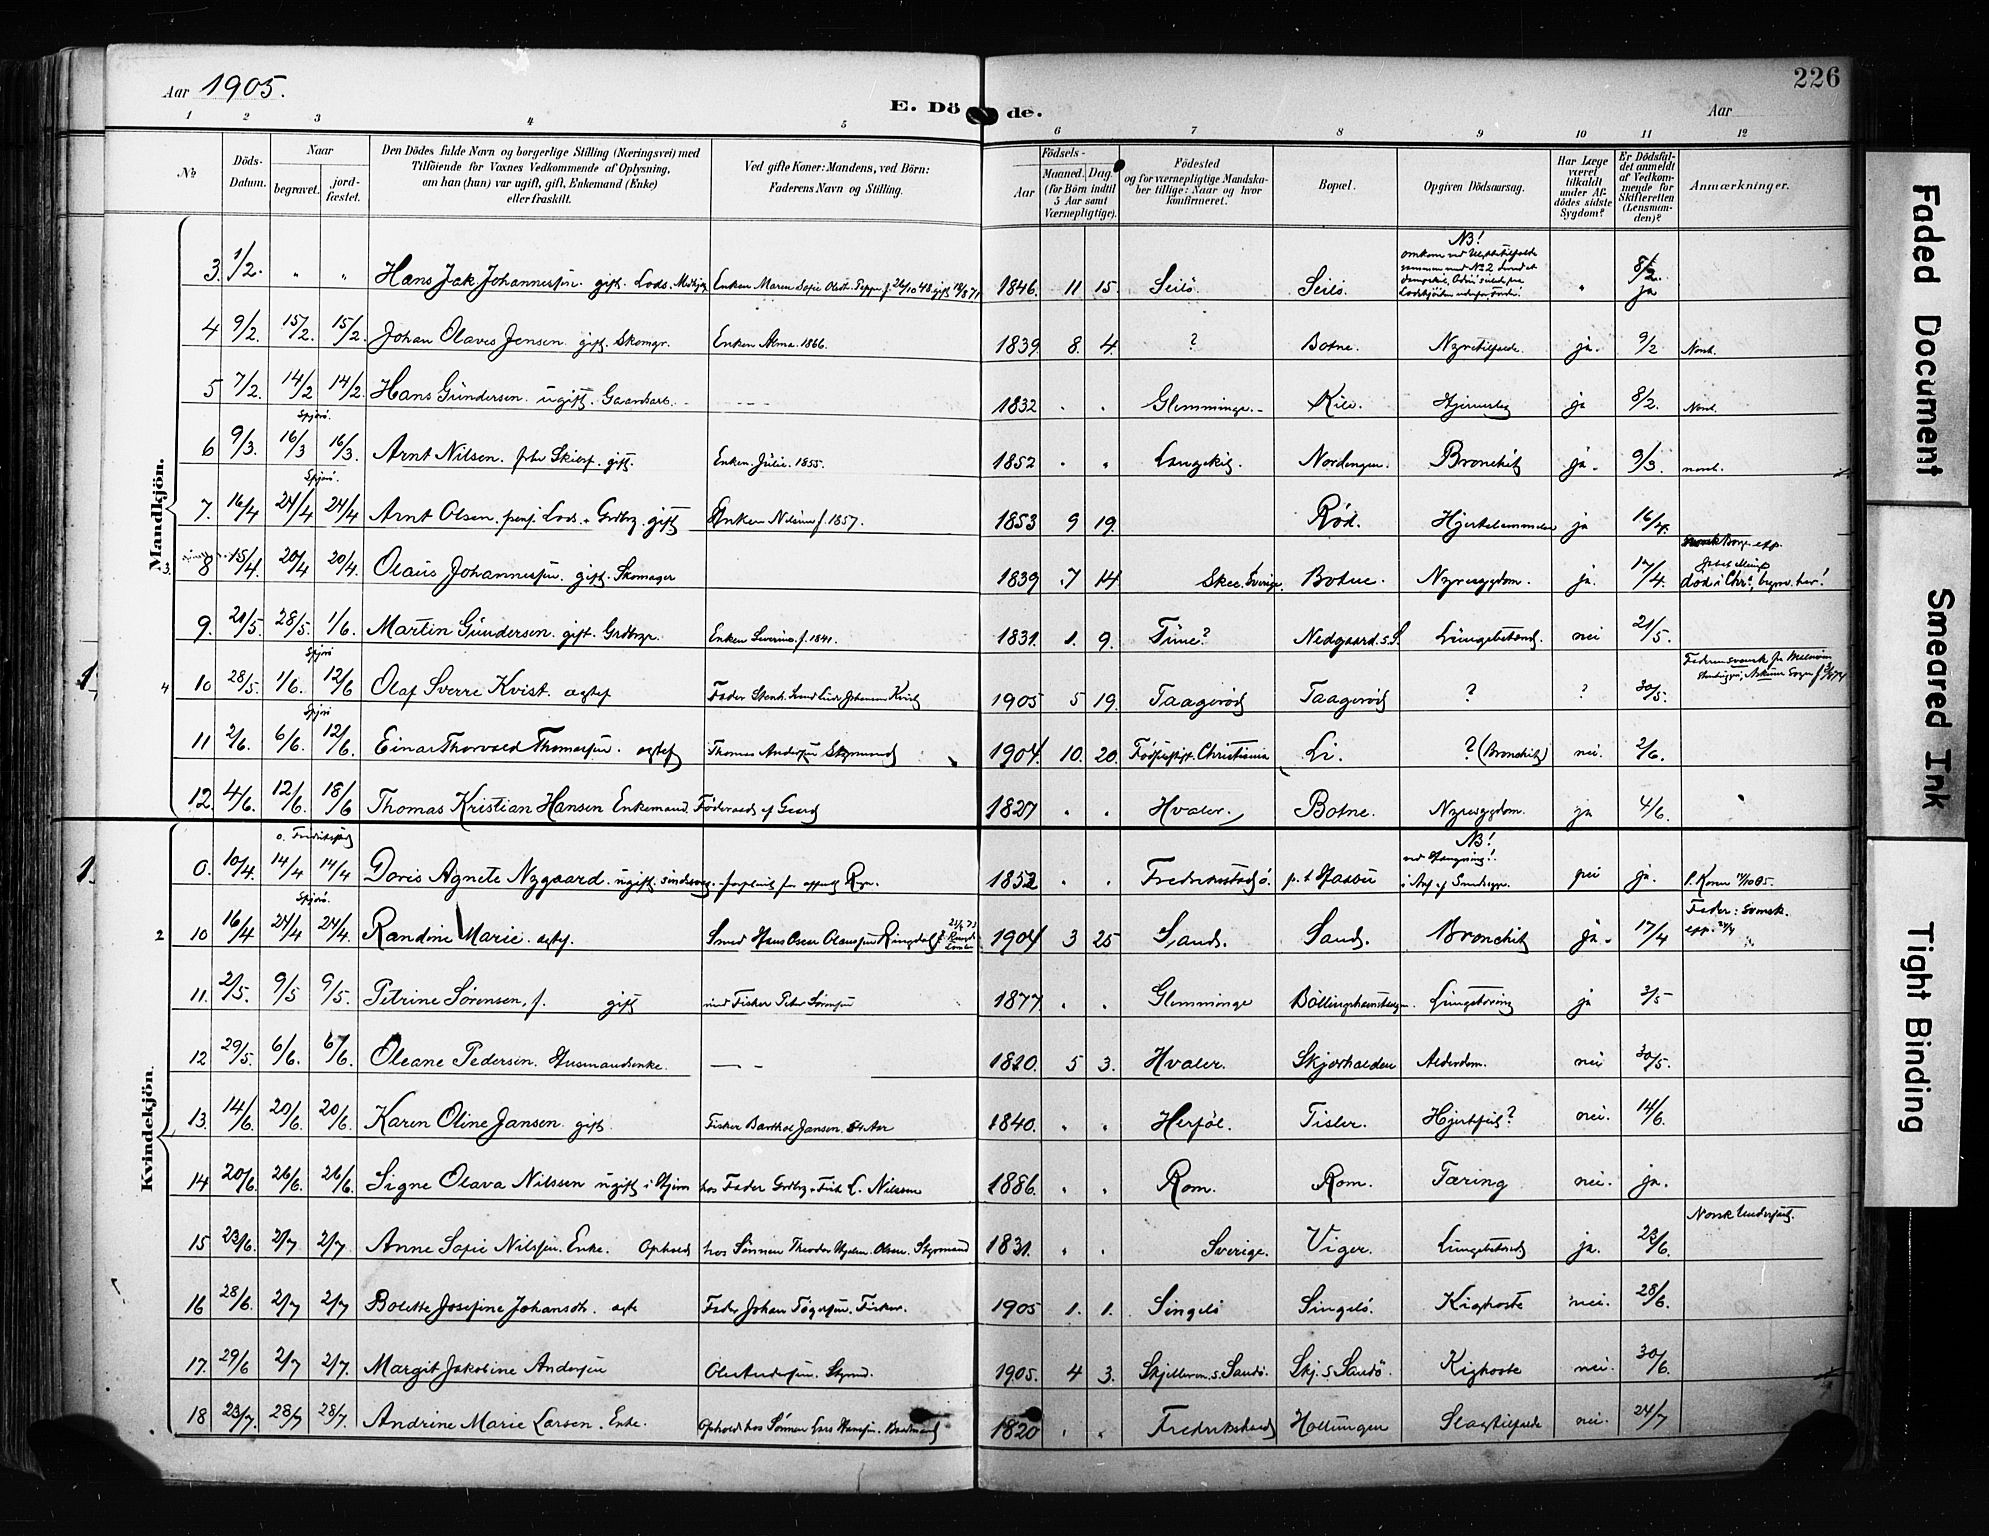 Aar 1905.
E. Döde.
Aar
226
1 2 3 4 5 6 7 8 9 10 11 12
№
Döds-Datum.
Naar
begravet.
jord-fæstet.
Den Dödes fulde Navn og borgerlige Stilling (Næringsvei) med
Tilföiende for Voxnes Vedkommende af Oplysning,
om han (hun) var ugift, gift, Enkemand (Enke)
eller fraskilt.
Ved gifte Koner: Mandens, ved Börn:
Faderens Navn og Stilling.
Födsels-
Aar
Maaned. Dag.
(for Börn indtil
5 Aar samt
Værnepligtige).
Födested
og for værnepligtige Mandska-
ber tillige: Naar og hvor
konfirmeret.
Bopæl.
Opgiven Dödsaarsag.
Har Læge
været
tilkaldt
under Af-
dödes sidste
Sygdom?
Er Dödsfal-
det anmeldt
af Vedkom-
mende for
Skifteretten
(Lensman-
den)?
Anmærkninger.
Mandkjön.
3. 1/2. " " Hans Jak Johannesen. gift. Lods. Enken Maren Sofie 1846. 11 15. Seilö. Seilö. NB! " 8/2 ja
4 9/2. 15/2. 15/2. Johan Olaves Jensen. gift. Skomgr. Enken Alma. 1866. 1839. 8. 4. ? Botne. Nyretilfælde ja. 9/2 Norsk.
5 7/2. 14/2 14/2. Hans Gundersen. ugift. Gaardarb. 1832 " " Glemminge. Kile. ja 8/2. Norsk.
Spjærö.
6 9/3. 16/3 16/3. Arnt Nilsen. gift. Enken. Julie. 1855. 1852 " " Langekil. Nordengen. Bronchit ja. 9/3. norsk.
Spjærö.
7. 16/4 24/4 24/4 Arnt Olsen. pens. Lods. Grdbrg. gift Enken f. 1857. 1853 9 19. Röd. ja 16/4.
8 15/4. 20/4 20/4. Olaus Johannesen. gift. Skomager 1839 7 14 Skee. Sverige. Botne. Nyresygdom. ja. 17/4. död i Chr.a, begrav. her!
9. 20/5. 28/5. 1/6. Martin Gundersen. gift. Grdbrgr. Enken Severine. f. 1841. 1831. 1. 9. Tune? Nedgaard. s. S. Lungebetænd. nei 21/5.
Spjærö
10 28/5. 1/6. 12/6 Olaf Sverre Kvist. ægtef Fader 1905 5 19. Taageröd Taageröd ? ? 30/5.
Spjærö
11 2/6. 6/6. 12/6. Einar Thorvald Thomassen. ægtef Thomas Andersen Skymand 1904. 10. 20. Födselsstift. Christiania Li. ? (Bronchit) nei. 2/6.
12. 4/6. 12/6. 18/6 Thomas Kristian Hansen Enkemand. Föderaad af Gaard 1827 " " Hvaler. Botne. Nyresygdom. ja 4/6.
Kvindekjön.
0. 10/4. 14/4 14/4 Doris Agnete Nygaard. ugift. 1852 " " Fredriksstad ö. p. t. NB! nei ja.
Spjærö.
10 16/4 24/4 24/4. Randine Marie. ægtef. Smed Hans Oscar Olaussen Ringdal 1904 3 25 Sand. Sand. Bronchit ja. 17/4 Fader: Svensk.
11. 2/5. 9/5 9/5. Petrine Sörensen, f. gift med Fisker Peter Sörensen 1877. " " Glemminge Lungetæring ja 3/5
12 29/5. 6/6. 6/6. Oleane Pedersen. Husmandsenke. 1820. 5 3. Hvaler. Skjærhalden Alderdom. nei 30/5.
13. 14/6. 20/6. 20/6. Karen Oline Jansen. gift. Fisker Barthol Jansen. 1840. " " Herföl. Tisler. Hjertfeil? nei. 14/6.
14 20/6. 26/6. 26/6. Signe Olava Nilssen ugift hos Fader L. Nilssen 1886. " " Rom. Rom. Tæring nei. ja.
Norsk Undersaat.
15 23/6. 2/7 2/7. Anne Sofie Nilssen. Enke. Ophold hos Sönnen Theodor Olsen. Skymand 1831. " " Sverige. Viger. Lungebetænd ja. 23/6.
16 28/6. 2/7 2/7 Bolette Josefine Johansdt. ægte Fader Johan Fisker. 1905 1. 1. Singelö Singelö. Kighoste nei. 28/6.
17. 29/6 2/7 2/7. Margit Jakobine Andersen Ole Andersen. Skymd. 1905. 4 3. Skjelleren. s. Sandö. Skj. s. Sandö. Kighoste nei. 30/6.
18 23/7. 28/7 28/7. Andrine Marie Larsen. Enke. Ophold hos Sönnen Lars Hansen. Baadmand 1820 " " Fredrikstad Hollungen Slagtilfælde nei. 24/7
Faded Document
Smeared Ink
Tight Binding